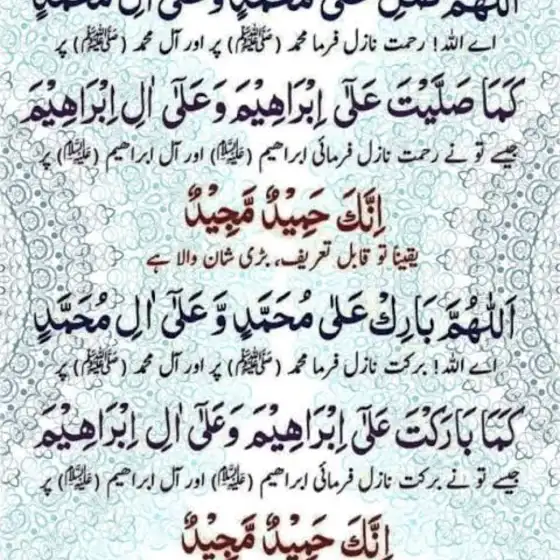 اَللّٰهُمَّ صَلِّ عَلٰى مُحَمَّدٍ وَّعَلٰٓى اٰلِ مُحَمَّدٍ
اے اللہ! رحمت نازل فرما محمد (ﷺ) پر اور آل محمد (ﷺ) پر
كَمَا صَلَّيْتَ عَلٰٓى اِبْرَاهِيْمَ وَعَلٰٓى اٰلِ اِبْرَاهِيْمَ
جیسے تو نے رحمت نازل فرمائی ابراھیم (علیہ السلام) اور آل ابراھیم (علیہ السلام) پر
اِنَّكَ حَمِيْدٌ مَّجِيْدٌ
یقیناً تو قابل تعریف، بڑی شان والا ہے
اَللّٰهُمَّ بَارِكْ عَلٰى مُحَمَّدٍ وَّ عَلٰٓى اٰلِ مُحَمَّدٍ
اے اللہ! برکت نازل فرما محمد (ﷺ) پر اور آل محمد (ﷺ) پر
كَمَا بَارَكْتَ عَلٰٓى اِبْرَاهِيْمَ وَعَلٰٓى اٰلِ اِبْرَاهِيْمَ
جیسے تو نے برکت نازل فرمائی ابراھیم (علیہ السلام) اور آل ابراھیم (علیہ السلام) پر
اِنَّكَ حَمِيْدٌ مَّجِيْدٌ